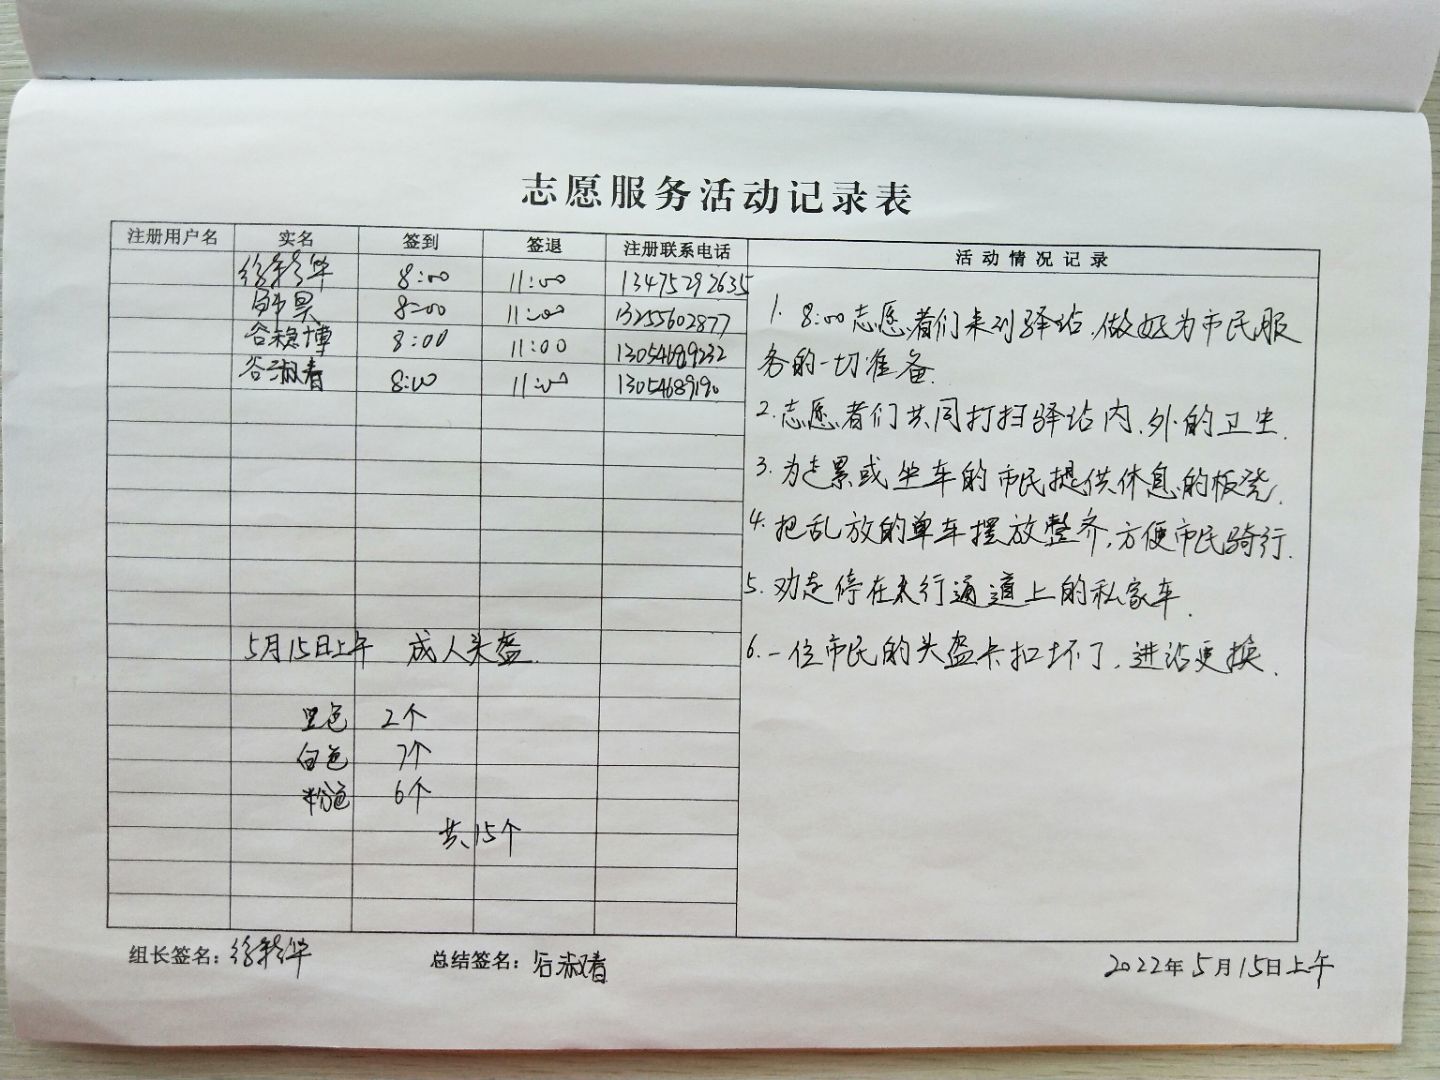 志愿服务活动记录表
注册用户名 实名 签到 签退 注册联系电话 活动情况记录
8:00 11:00 13475292635
8:00 11:00 13255602877
谷稳博 8:00 11:00 13054689232
谷淑春 8:00 11:00 13054689190
1. 8:00志愿者们来到驿站,做好为市民服
务的一切准备.
2.志愿者们共同打扫驿站内、外的卫生.
3.为走累或坐车的市民提供休息的板凳.
4.把乱放的单车摆放整齐,方便市民骑行.
5.劝走停在人行通道上的私家车.
6.一位市民的头盔卡扣坏了,进站更换.
5月15日上午 成人头盔.
黑色 2个
白色 7个
粉色 6个
共15个
组长签名: 总结签名:谷淑春 2022年5月15日上午